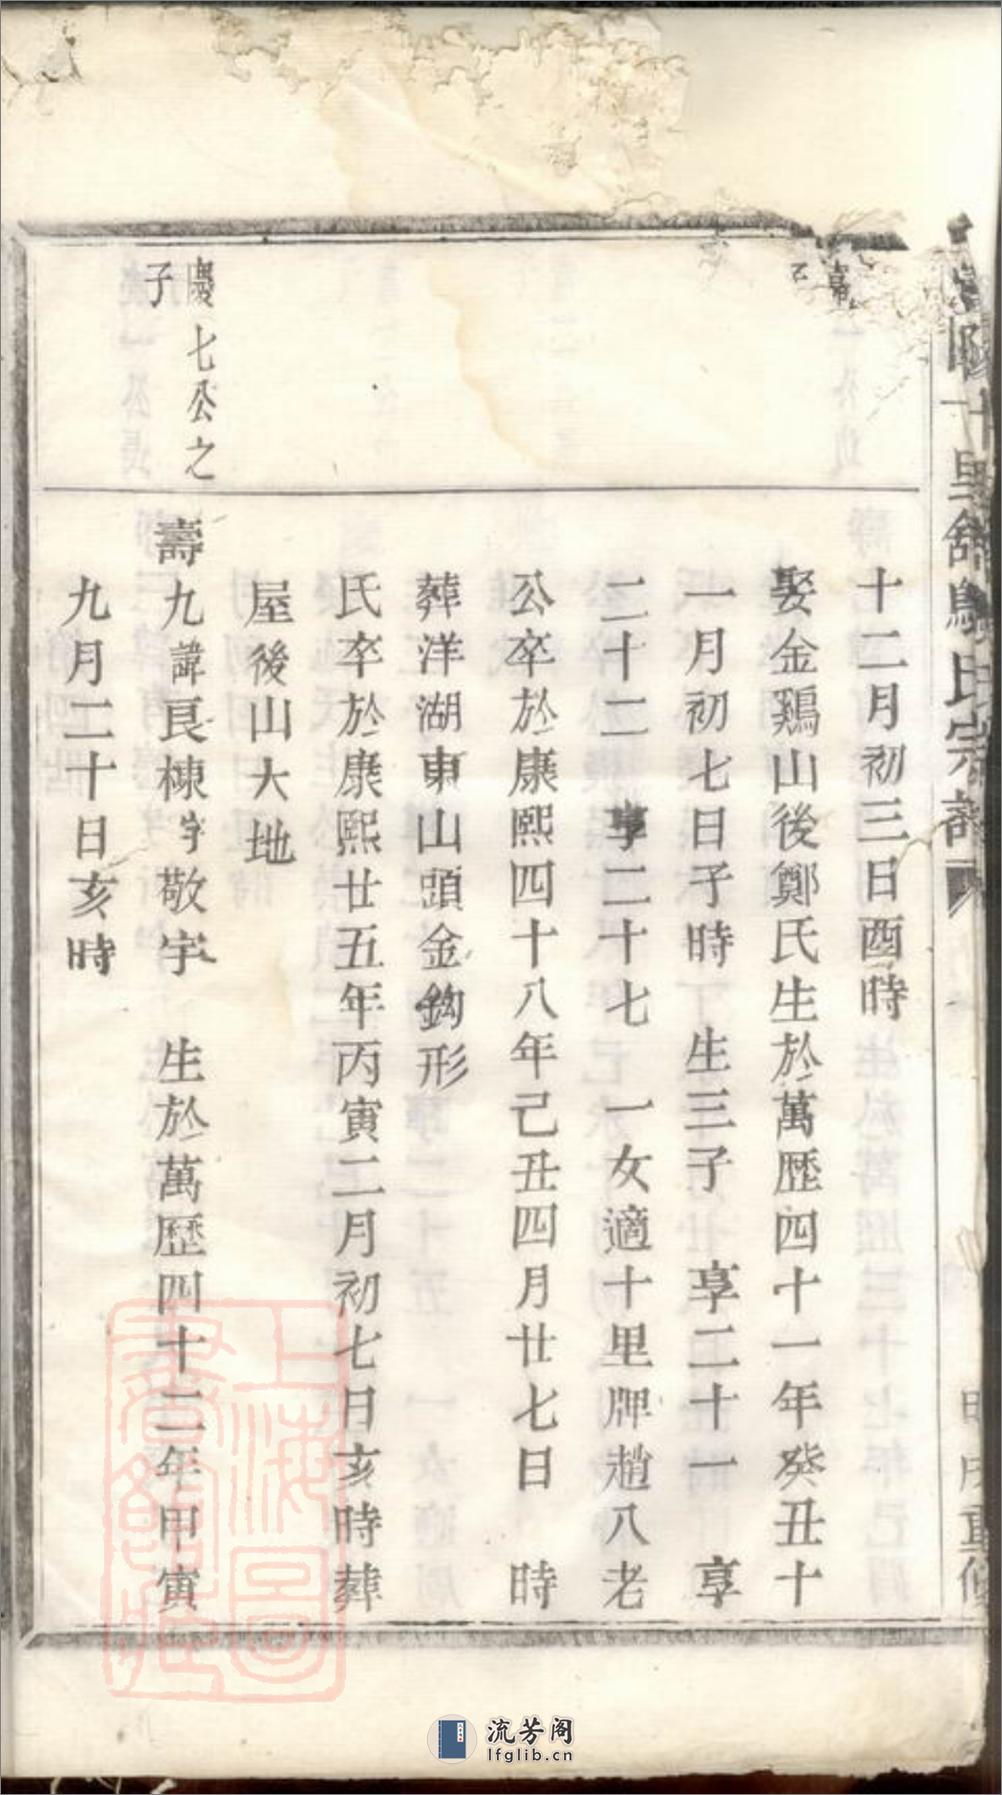 十二月初三日酉時
娶金鷄山後鄭氏生於萬歷四十一年癸丑十
一月初七日子時　生三子　享二十一　享
二十二　享二十七　一女適十里牌趙八老
公卒於康熙四十八年己丑四月廿七日　時
葬洋湖東山頭金鈎形
氏卒於康熙廿五年丙寅二月初七日亥時葬
屋後山大地
慶七公之
子
壽九諱良棟字敬宇　生於萬歷四十二年甲寅
九月二十日亥時
上海圖
書館藏
流芳阁
lfglib.cn